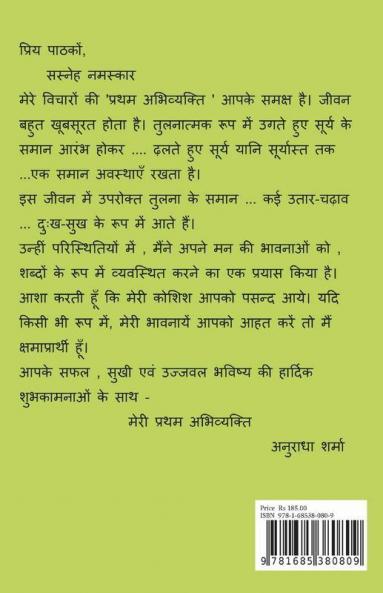 प्रिय पाठकों,
सस्नेह नमस्कार
मेरे विचारों की 'प्रथम अभिव्यक्ति ' आपके समक्ष है। जीवन
बहुत खूबसूरत होता है। तुलनात्मक रूप में उगते हुए सूर्य के
समान आरंभ होकर .... ढ़लते हुए सूर्य यानि सूर्यास्त तक
...एक समान अवस्थाएँ रखता है।
इस जीवन में उपरोक्त तुलना के समान ... कई उतार-चढ़ाव
... दुःख-सुख के रूप में आते हैं।
उन्हीं परिस्थितियों में , मैंने अपने मन की भावनाओं को ,
शब्दों के रूप में व्यवस्थित करने का एक प्रयास किया है।
आशा करती हूँ कि मेरी कोशिश आपको पसन्द आये। यदि
किसी भी रूप में, मेरी भावनायें आपको आहत करें तो मैं
क्षमाप्रार्थी हूँ।
आपके सफल , सुखी एवं उज्जवल भविष्य की हार्दिक
शुभकामनाओं के साथ -
मेरी प्रथम अभिव्यक्ति
अनुराधा शर्मा
Price Rs 185.00
ISBN 978-1-68538-080-9
9 781685 380809